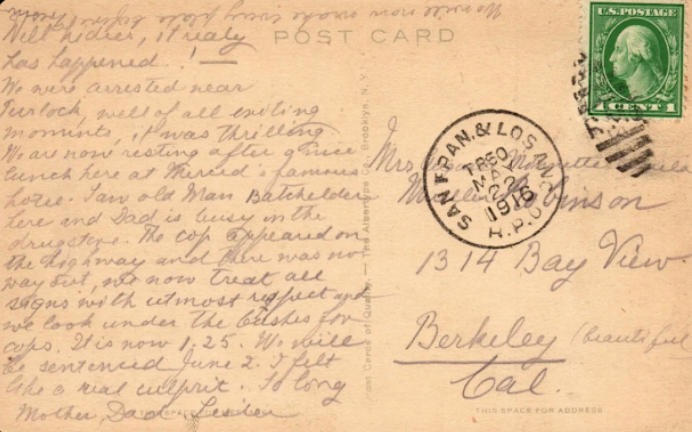 POST CARD
Well kidies, it realy
has happened! —
We were arrested near
Turlock, well of all exiting
moments, it was thrilling
We are now resting after a nice
lunch here at Merced's famous
hotel. Saw old Man Batchelder
here and Dad is busy in the
drugstore. The cop appeared on
the highway and there was no
way out, we now treat all
signs with utmost respect and
we look under the bushes for
cops. It is now 1.25. We will
be sentenced June 2. I felt
like a real culprit. So long
Mother, Dad
Post Cards of Quality. — The Albertype Co., Brooklyn, N. Y.
U.S. POSTAGE
1 CENT 1
SAN FRAN. & LOS ANG.
MAY
22
1916
R.P.O.
Mrs
Robinson
1314 Bay View.
Berkeley (beautiful
Cal.
THIS SPACE FOR ADDRESS